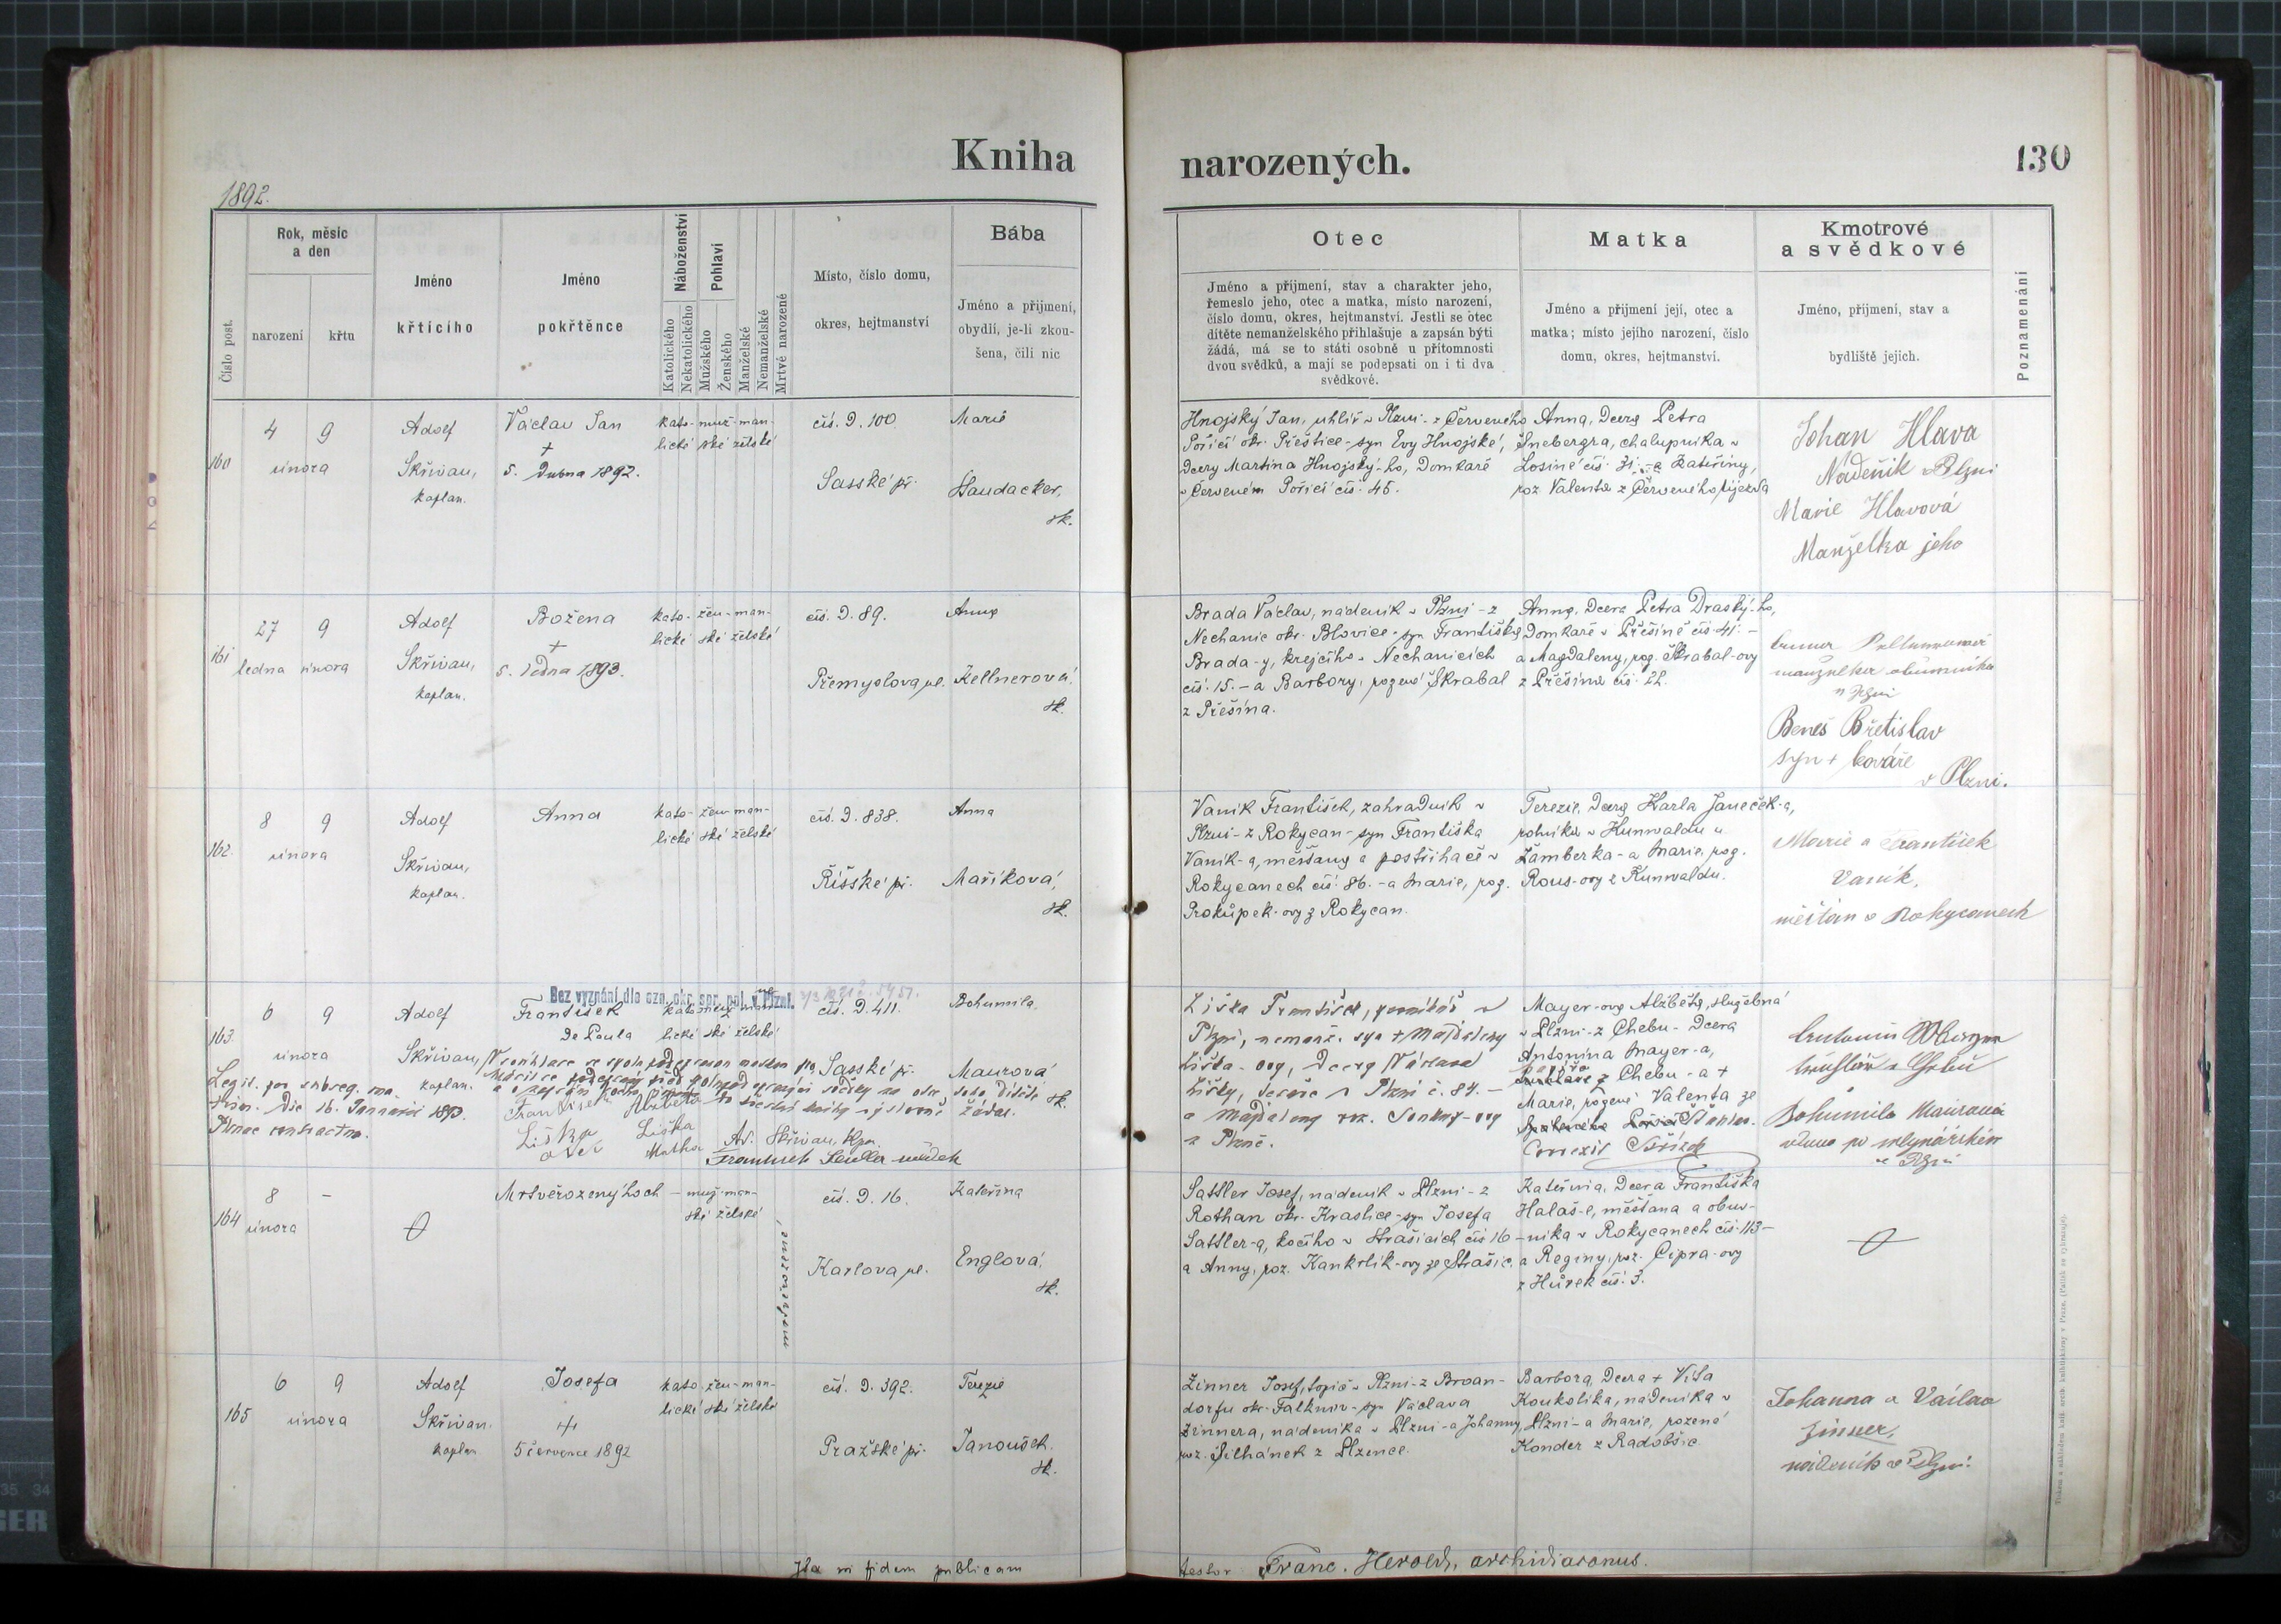 Kniha
narozených.
130
1892.
Číslo post.
Rok, měsíc
a den
narození
křtu
Jméno
křtícího
Jméno
pokřtěnce
Náboženství
Katolického
Nekatolického
Pohlaví
Mužského
Ženského
Manželské
Nemanželské
Mrtvě narozené
Místo, číslo domu,
okres, hejtmanství
Bába
Jméno a příjmení,
obydlí, je-li zkou-
šena, čili nic
Otec
Jméno a příjmení, stav a charakter jeho,
řemeslo jeho, otec a matka, místo narození,
číslo domu, okres, hejtmanství. Jestli se otec
dítěte nemanželského přihlašuje a zapsán býti
žádá, má se to státi osobně u přítomnosti
dvou svědků, a mají se podepsati on i ti dva
svědkové.
Matka
Jméno a příjmení její, otec a
matka; místo jejího narození, číslo
domu, okres, hejtmanství.
Kmotrové
a svědkové
Jméno, příjmení, stav a
bydliště jejich.
Poznamenání
160
4 9
února
Adolf
Skřivan,
kaplan.
Václav Jan
+
5. dubna 1892.
kato- muž- man-
lické ské želské
čís. d. 100.
Sasské př.
Marie
Haudacker,
zk.
Hnojský Jan, uhlíř v Plzni - z Červeného
Poříčí okr. Přeštice - syn Evy Hnojské,
dcery Martina Hnojský-ho, domkaře
v Červeném Poříčí čís. 45.
Anna, dcera Petra
Šnebergra, chalupníka v
Losině čís. 31. - a Kateřiny,
roz. Valenta z Červeného
Johan Hlava
Nádeník v Plzni
Marie Hlavová
Manželka jeho
161
27 9
ledna února
Adolf
Skřivan,
kaplan.
Božena
+
5. ledna 1893.
kato- žen- man-
lické ské želské
čís. d. 89.
Přemyslova ul.
Anna
Kellnerová,
zk.
Brada Václav, nádeník v Plzni - z
Nechanic okr. Blovice - syn Františka
Brada-y, krejčího v Nechanicích
čís. 15. - a Barbory, rozené Škrabal
z Přešína.
Anna, dcera Petra Draský-ho,
domkaře v Přešíně čís. 41. -
a Magdaleny, roz. Škrabal-ovy
z Přešína čís. 22.
manželka obuvníka
v Plzni
Beneš Břetislav
syn + kováře
v Plzni.
162.
8 9
února
Adolf
Skřivan,
kaplan.
Anna
kato- žen- man-
lické ské želské
čís. d. 838.
Říšské př.
Anna
Maříková,
zk.
Vaník František, zahradník v
Plzni - z Rokycan - syn Františka
Vaník-a, měšťana a postřihače v
Rokycanech čís. 86. - a Marie, roz.
Prokůpek-ovy z Rokycan.
Terezie, dcera Karla Janeček-a,
rolníka v Kunwaldu u
Žamberka - a Marie, roz.
Rous-ovy z Kunwaldu.
Marie a František
Vaník,
měšťan v Rokycanech
163.
6 9
února
Adolf
Skřivan,
kaplan.
Bez vyznání dle ozn. okr. spr. pol. v Plzni.
František
de Paula
lické ské želské
čís. d. 411.
Sasské př.
Bohumila
Maurová
zk.
toto dítěte
žádal.
František Alžběta
Liška Liška
otec Matka
Ad. Skřivan, kpn.
svědek
Liška František, v
Plzni, nemanž. syn + Majdaleny
Liška-ovy, dcery Václava
Lišky, v Plzni č. 84. -
a Majdaleny roz.
z Plzně.
Mayer-ova Alžběta, služebná
v Plzni - z Chebu - dcera
Antonína Mayer-a,
z Chebu - a +
Marie, rozené Valenta ze
Bohumila Maurová
vdova po mlynářském
v Plzni
164
8 -
února
Mrtvěrozený hoch - muž- man-
ské želské
mrtvěrozené
čís. d. 16.
Karlova ul.
Kateřina
Englová,
zk.
Sattler Josef, nádeník v Plzni - z
Rothau okr. Kraslice - syn Josefa
Sattler-a, kočího v Strašicích čís 16 -
a Anny, roz. Kankrlík-ovy ze Strašic.
Kateřina, dcera Františka
Halaš-e, měšťana a obuv-
níka v Rokycanech čís. 113 -
a Reginy, roz. Cipra-ovy
z Hůrek čís. 3.
165
6 9
února
Adolf
Skřivan.
kaplan
Josefa
+
5 července 1892
kato- žen- man-
lické ské želské
čís. d. 392.
Pražské př.
Terezie
Janoušek.
zk.
Zinner Josef, topič v Plzni - z Broan-
dorfu okr. Falknov - syn Václava
Zinnera, nádeníka v Plzni - a Johanny,
roz. Šilhánek z Plzence.
Barbora, dcera + Víta
Koukolíka, nádeníka v
Plzni - a Marie, rozené
Konder z Radobšic.
Johanna a Václav
Zinner,
nádeník v Plzni.
Ita in fidem publicam
testor Franc. Herold, archidiaconus.